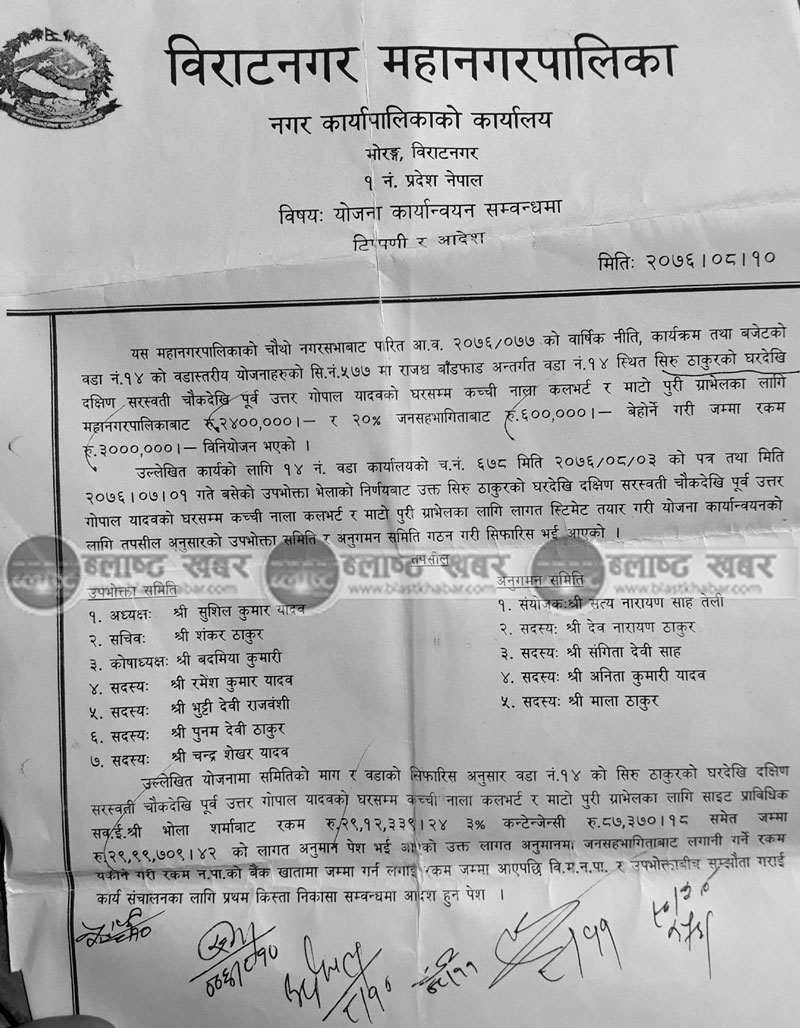 विराटनगर महानगरपालिका
नगर कार्यापालिकाको कार्यालय
मोरङ्ग, विराटनगर
१ नं. प्रदेश नेपाल
विषयः योजना कार्यान्वयन सम्वन्धमा
टिप्पणी र आदेश
मितिः २०७६।०८।१०
यस महानगरपालिकाको चौथो नगरसभाबाट पारित आ.व. २०७६/०७७ को वार्षिक नीति, कार्यक्रम तथा बजेटको
वडा नं.१४ को वडास्तरीय योजनाहरुको सि.नं.५७७ मा राजश्व बाँडफाड अन्तर्गत वडा नं.१४ स्थित सिरु ठाकुरको घरदेखि
दक्षिण सरस्वती चौकदेखि पूर्व उत्तर गोपाल यादवको घरसम्म कच्ची नाला कलभर्ट र माटो पुरी ग्राभेलका लागि
महानगरपालिकाबाट रु.२४००,०००।– र २०% जनसहभागिताबाट रु.६००,०००।– बेहोर्ने गरी जम्मा रकम
रु.३०००,०००।– विनियोजन भएको ।
उल्लेखित कार्यको लागि १४ नं. वडा कार्यालयको च.नं. ६७८ मिति २०७६/०८/०३ को पत्र तथा मिति
२०७६।०७।०१ गते बसेको उपभोक्ता भेलाको निर्णयबाट उक्त सिरु ठाकुरको घरदेखि दक्षिण सरस्वती चौकदेखि पूर्व उत्तर
गोपाल यादवको घरसम्म कच्ची नाला कलभर्ट र माटो पुरी ग्राभेलका लागि लागत स्टिमेट तयार गरी योजना कार्यान्वयनको
लागि तपसील अनुसारको उपभोक्ता समिति र अनुगमन समिति गठन गरी सिफारिस भई आएको ।
तपसील
ब्लाष्ट खबर ब्लाष्ट खबर ब्लाष्ट खबर
www.blastkhabar.com www.blastkhabar.com www.blastkhabar.com
उपभोक्ता समिति
१. अध्यक्षः श्री सुशिल कुमार यादव
२. सचिवः श्री शंकर ठाकुर
३. कोषाध्यक्षः श्री बदमिया कुमारी
४. सदस्यः श्री रमेश कुमार यादव
५. सदस्यः श्री भुट्टी देवी राजवंशी
६. सदस्यः श्री पुनम देवी ठाकुर
७. सदस्यः श्री चन्द्र शेखर यादव
अनुगमन समिति
१. संयोजकःश्री सत्य नारायण साह तेली
२. सदस्यः श्री देव नारायण ठाकुर
३. सदस्यः श्री संगिता देवी साह
४. सदस्यः श्री अनिता कुमारी यादव
५. सदस्यः श्री माला ठाकुर
उल्लेखित योजनामा समितिको माग र वडाको सिफारिस अनुसार वडा नं.१४ को सिरु ठाकुरको घरदेखि दक्षिण
सरस्वती चौकदेखि पूर्व उत्तर गोपाल यादवको घरसम्म कच्ची नाला कलभर्ट र माटो पुरी ग्राभेलका लागि साइट प्राविधिक
सव.ई.श्री भोला शर्माबाट रकम रु.२९,१२,३३९।२४ ३% कन्टेन्जेन्सी रु.८७,३७०।१८ समेत जम्मा
रु.२९,९९,७०९।४२ को लागत अनुमान पेश भई आएको उक्त लागत अनुमानमा जनसहभागिताबाट लगानी गर्ने रकम
गरी रकम न.पा.को बैंक खातामा जम्मा गर्न लगाई रकम जम्मा आएपछि वि.म.न.पा. र उपभोक्ताबीच सम्झौता गराई
कार्य संचालनका लागि प्रथम किस्ता निकासा सम्वन्धमा आदेश हुन पेश ।